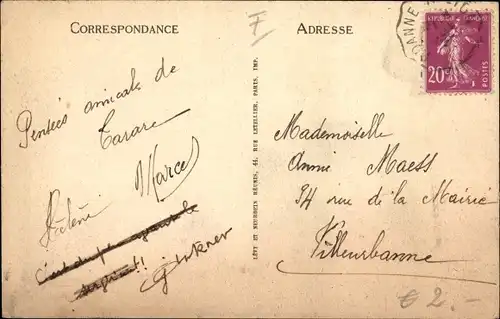 CORRESPONDANCE
ADRESSE
F
REPUBLIQUE FRANÇAISE
20c
POSTES
Pensées amicale de
Tarare
Marcel
Hélène
c'est
LÉVY ET NEURDEIN RÉUNIS, 44, RUE LETELLIER, PARIS, IMP.
Mademoiselle
Annie Maess
94 rue de la Mairie
Villeurbanne
€ 2.-